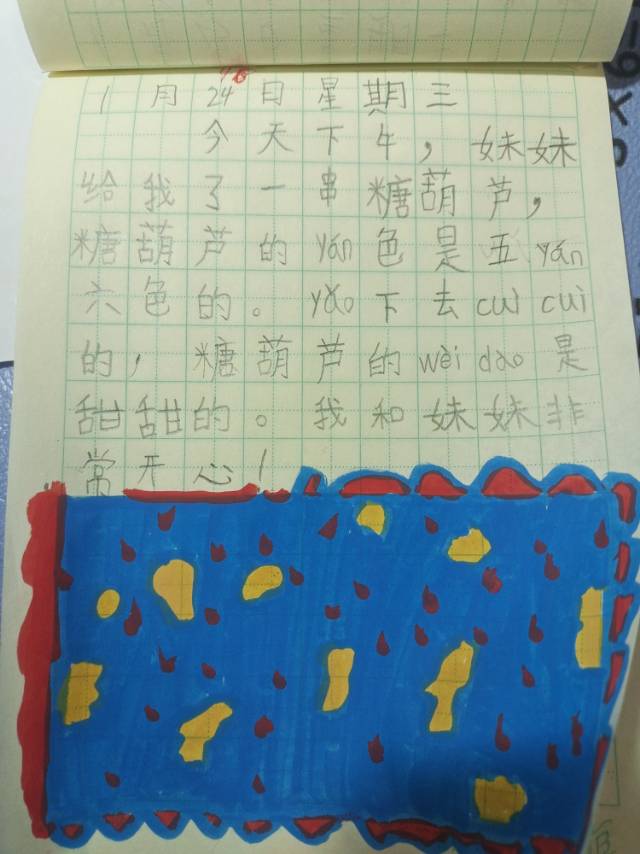 1月24日星期三
今天下午，妹妹
给我了一串糖葫芦，
糖葫芦的yán色是五yán
六色的。yǎo下去cuì cuì
的，糖葫芦的wèi dao是
甜甜的。我和妹妹非
常开心！